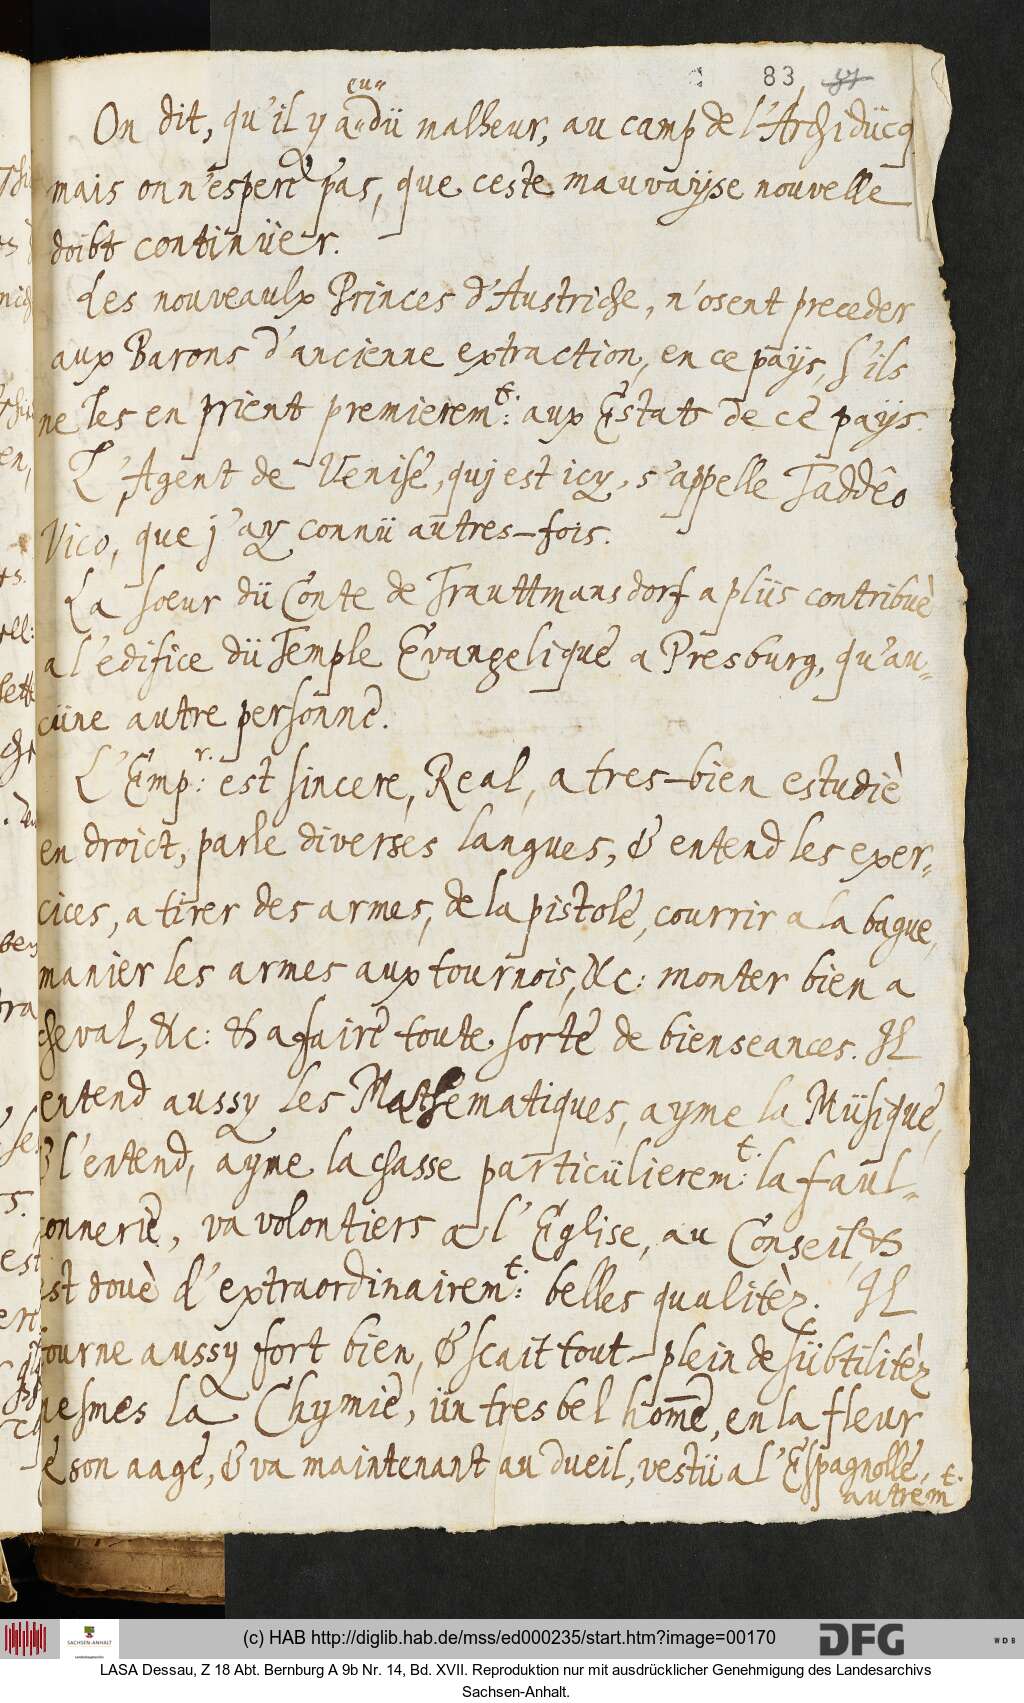 83 37
eu
On dit, qu'il y a dü malheur, au camp de l'Archiducq
mais on n'espere pas, que ceste mauvayse nouvelle
doibt continüer.
Les nouveaulx Princes d'Austriche, n'osent preceder
aux Barons d'ancienne extraction, en ce pays, s'ils
ne les en prient premierem.t: aux Estats de ce pays.
L'Agent de Venise, quj est icy, s'appelle Taddêo
Vico, que j'ay connü autres-fois.
La soeur dü Conte de Trauttmansdorf a plüs contribuè
a l'edifice dü Temple Evangelique a Presburg, qu'au-
cüne autre personne.
L'Emp.r: est sincere, Real, a tres-bien estudiè
en droict, parle diverses langues, & entend les exer-
cices, a tirer des armes, de la pistole, courrir a la bague,
manier les armes aux tournois, &c: monter bien a
cheval, &c: & a faire toute sorte de bienseances. Il
entend aussy les Mathematiques, ayme la Müsique,
& l'entend, ayme la chasse particülierem.t: la faul-
connerie, va volontiers a l'Eglise, au Conseil, &
est douè d'extraordinairem.t: belles qualitèz. Il
tourne aussy fort bien, & scait tout-plein de sübtilitèz
mesmes la Chymie, ün tres bel hom̅e, en la fleur
de son aage, & va maintenant au dueil, vestü a l'Espagnolle,
autrem.t
(c) HAB http://diglib.hab.de/mss/ed000235/start.htm?image=00170
DFG
WDB
SACHSEN-ANHALT
LASA Dessau, Z 18 Abt. Bernburg A 9b Nr. 14, Bd. XVII. Reproduktion nur mit ausdrücklicher Genehmigung des Landesarchivs
Sachsen-Anhalt.